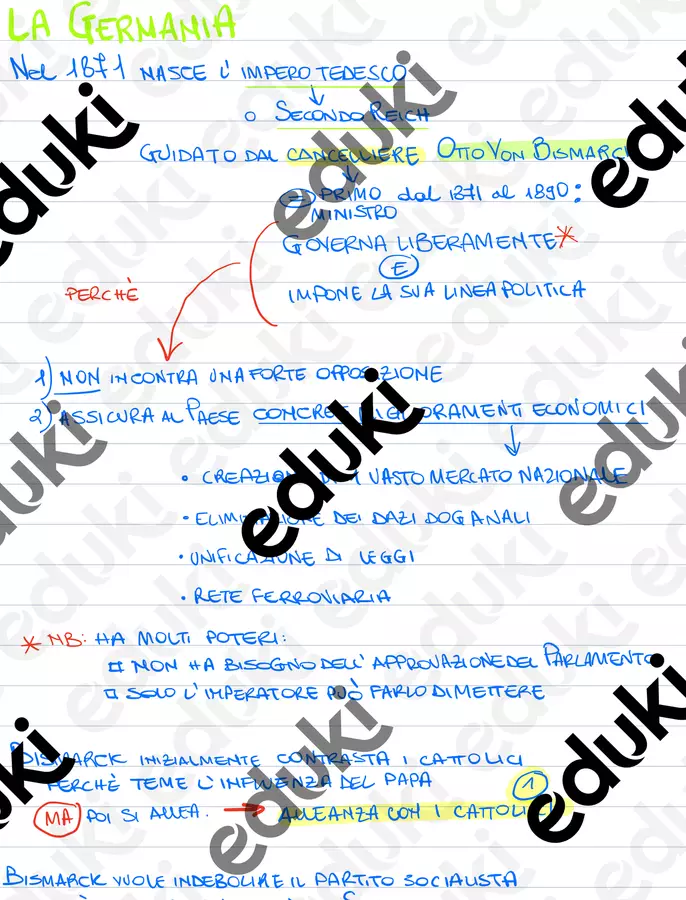 LA GERMANIA
Nel 1871 NASCE L'IMPERO TEDESCO
O SECONDO REICH
GUIDATO DAL CANCELLIERE OTTO VON BISMARCK
= PRIMO MINISTRO dal 1871 al 1890:
GOVERNA LIBERAMENTE*
E
IMPONE LA SUA LINEA POLITICA
PERCHÈ
1) NON INCONTRA UNA FORTE OPPOSIZIONE
2) ASSICURA AL PAESE CONCRETI MIGLIORAMENTI ECONOMICI
• CREAZIONE DI UN VASTO MERCATO NAZIONALE
• ELIMINAZIONE DEI DAZI DOGANALI
• UNIFICAZIONE DI LEGGI
• RETE FERROVIARIA
* NB: HA MOLTI POTERI:
NON HA BISOGNO DELL'APPROVAZIONE DEL PARLAMENTO
SOLO L'IMPERATORE PUÒ FARLO DIMETTERE
BISMARCK INIZIALMENTE CONTRASTA I CATTOLICI
PERCHÈ TEME L'INFLUENZA DEL PAPA
1
MA POI SI ALLEA. → ALLEANZA CON I CATTOLICI
BISMARCK VUOLE INDEBOLIRE IL PARTITO SOCIALISTA
eduki